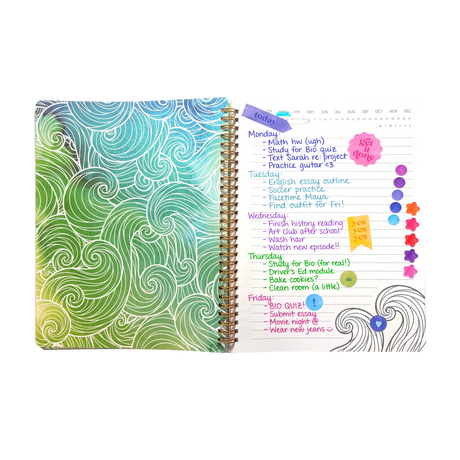 today
JAN FEB MAR APR MAY JUN JUL AUG SEP OCT NOV DEC
Monday:
- Math hw (ugh)
- Study for Bio quiz
- Text Sarah re: project
- Practice guitar <3
get it done
Tuesday:
- English essay outline
- Soccer practice
- Facetime Maya
- Find outfit for Fri!
Wednesday:
- Finish history reading
- Art club after school
- Wash hair
- Watch new episode!!
yes
yes
yes
Thursday:
- Study for Bio (for real!)
- Driver's Ed module
- Bake cookies?
- Clean room (a little)
Friday:
- BIO QUIZ!
- Submit essay
- Movie night
- Wear new jeans
!